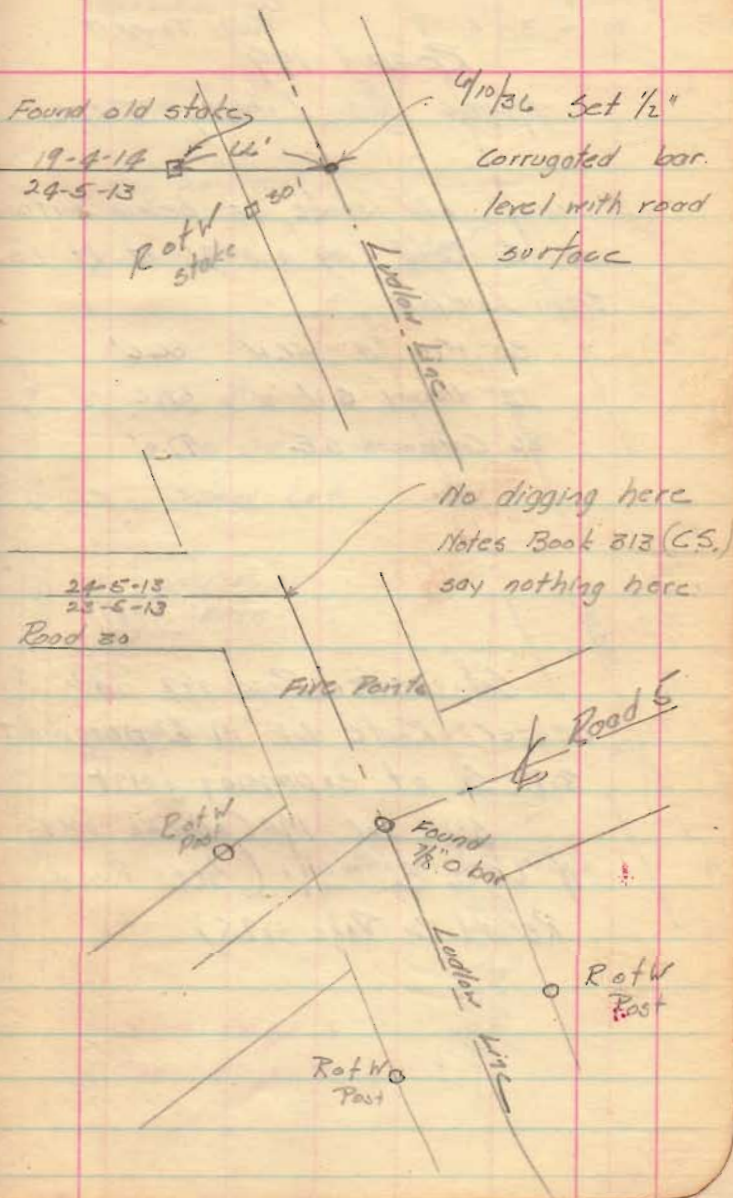 Found old stake
6/10/36 Set 1/2"
19-4-14
24-5-13
66'
Corrugated bar.
level with road
surface
30'
R of W
stake
Ludlow Line
No digging here
Notes Book 313 (C.S.)
say nothing here
24-5-13
23-5-13
Road 30
Five Points
Road 5
R of W
post
Found
7/8" O bar
Ludlow Line
R of W
Post
R of W
Post